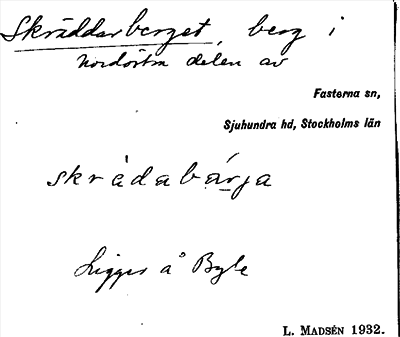 Skräddarberget, berg i
nordöstra delen av
Fasterna sn,
Sjuhundra hd, Stockholms län
skràdabárja
Ligger å Byle
L. MADSÉN 1932.